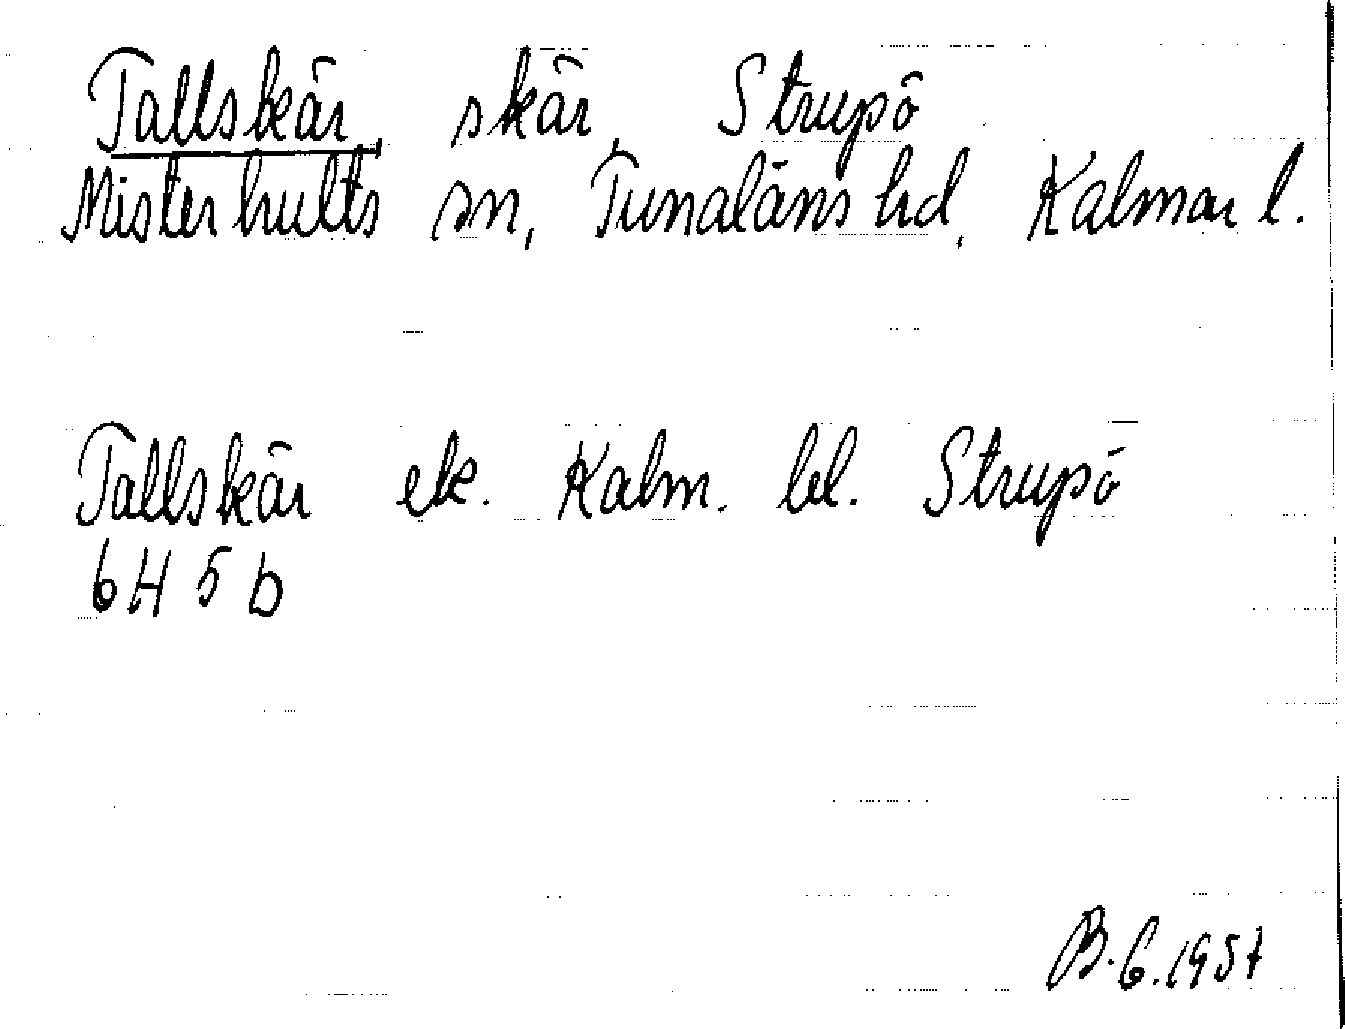 Tallskär, skär, Strupö
Misterhults sn, Tunaläns hd, Kalmar l.
Tallskär ek. Kalm. bl. Strupö
6H 5 b
B.G. 1957